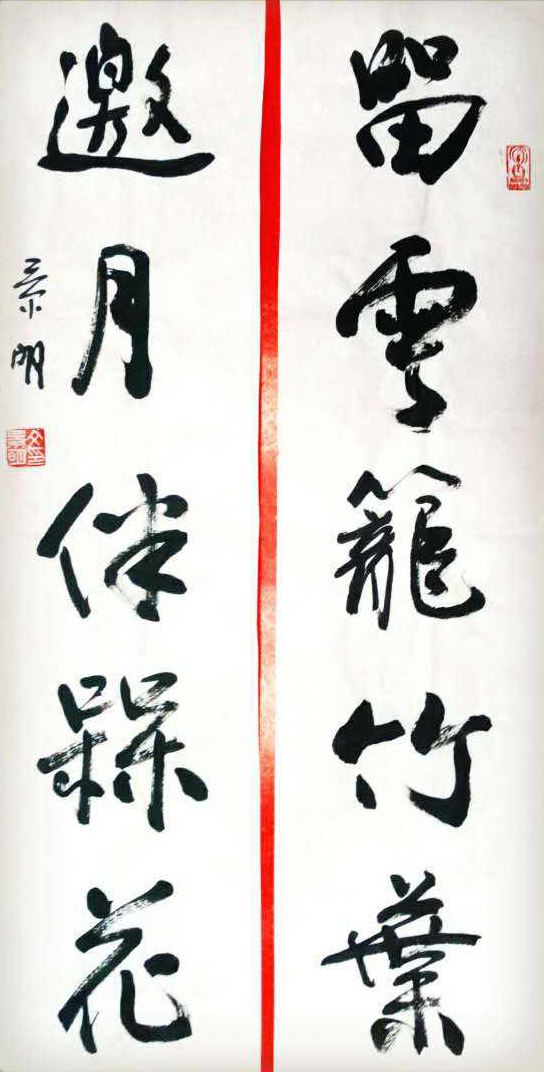 留雲籠竹葉
邀月伴槑花
景明